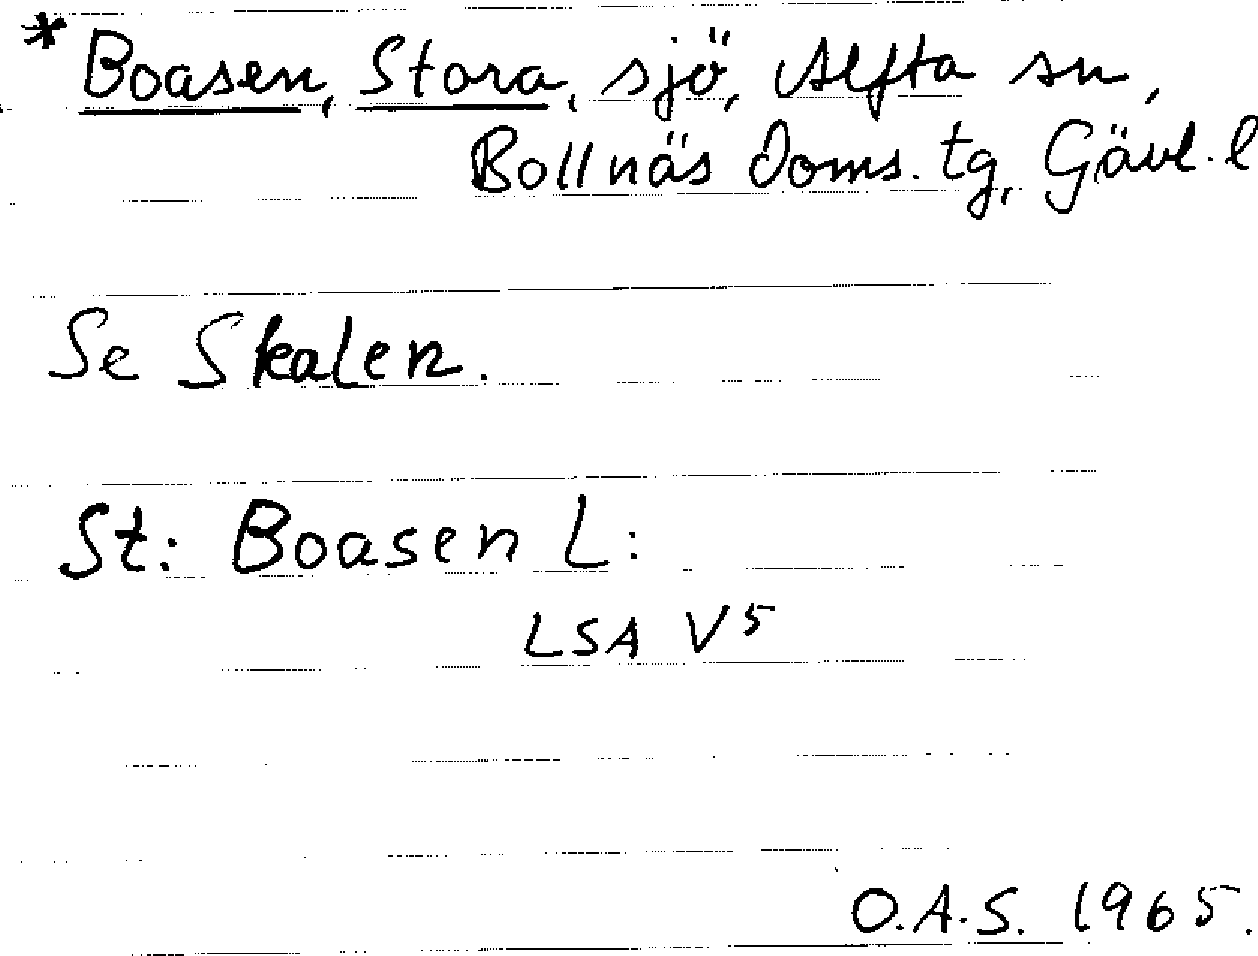 * Boasen, Stora, sjö, Alfta sn,
Bollnäs doms. tg, Gävl. l
Se Skalen.
St: Boasen L:
LSA V5
O.A.S. 1965.